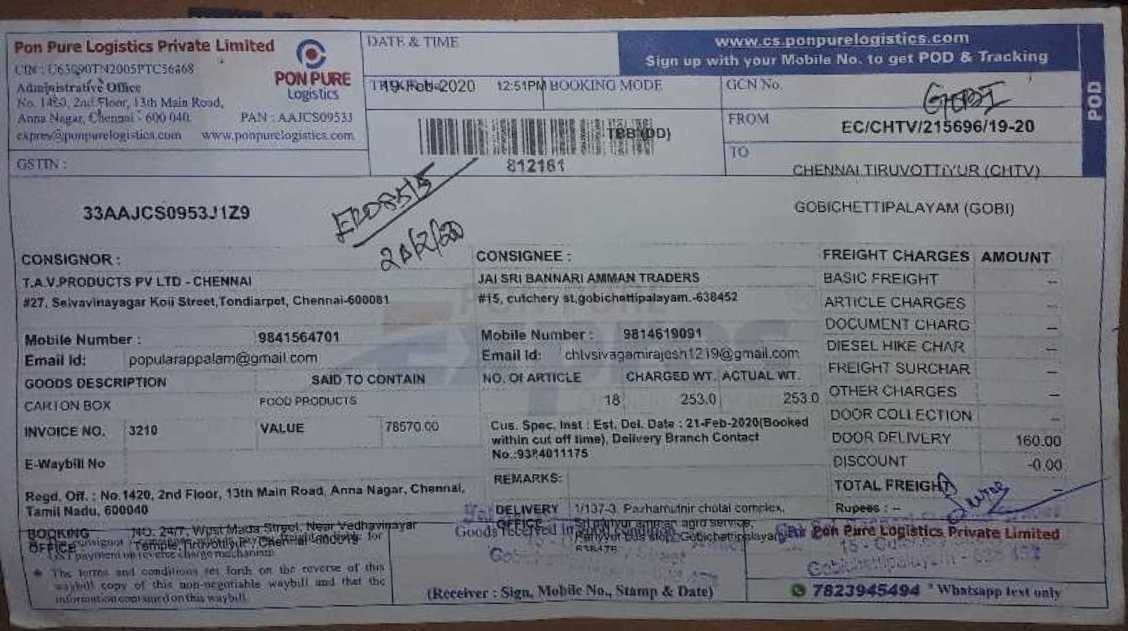 Pon Pure Logistics Private Limited
CIN : U63090TN2005PTC56868
Administrative Office
No. 1420, 2nd Floor, 13th Main Road,
Anna Nagar, Chennai - 600 040.
PAN : AAJCS0953J
www.ponpurelogistics.com
PON PURE
Logistics
GSTIN :
33AAJCS0953J1Z9
DATE & TIME
19-Feb-2020 12:51PM
BOOKING MODE
TBB(DD)
812161
www.cs.ponpurelogistics.com
Sign up with your Mobile No. to get POD & Tracking
POD
GCN No.
GOBI
EC/CHTV/215696/19-20
FROM
CHENNAI TIRUVOTTIYUR (CHTV)
TO
GOBICHETTIPALAYAM (GOBI)
CONSIGNOR :
T.A.V.PRODUCTS PV LTD - CHENNAI
#27, Selvavinayagar Koil Street,Tondiarpet, Chennai-600081
Mobile Number : 9841564701
Email Id: popularappalam@gmail.com
CONSIGNEE :
JAI SRI BANNARI AMMAN TRADERS
#15, cutchery st,gobichettipalayam.-638452
Mobile Number : 9814619091
Email Id: chlvsivagamirajesh1219@gmail.com
GOODS DESCRIPTION SAID TO CONTAIN
CARTON BOX FOOD PRODUCTS
INVOICE NO. 3210 VALUE 78570.00
E-Waybill No
NO. Of ARTICLE CHARGED WT. ACTUAL WT.
18 253.0 253.0
Cus. Spec. Inst : Est. Del. Date : 21-Feb-2020(Booked
within cut off time), Delivery Branch Contact
No.:9384011175
REMARKS:
FREIGHT CHARGES AMOUNT
BASIC FREIGHT --
ARTICLE CHARGES --
DOCUMENT CHARG --
DIESEL HIKE CHAR --
FREIGHT SURCHAR --
OTHER CHARGES --
DOOR COLLECTION --
DOOR DELIVERY 160.00
DISCOUNT -0.00
TOTAL FREIGHT
Rupees : --
Regd. Off. : No.1420, 2nd Floor, 13th Main Road, Anna Nagar, Chennai,
Tamil Nadu, 600040
BOOKING OFFICE
NO. 24/7, West Mada Street, Near Vedhavinayar
Temple,Tiruvottiyur,Chennai-600019
GST payment on reverse charge mechanism
* The terms and conditions set forth on the reverse of this
waybill copy of this non-negotiable waybill and that the
information contained on this waybill
DELIVERY OFFICE
1/137-3, Pazhamuthir cholai complex,
agro service,
bus stop, Gobichettipalayam
638476
Goods received in
(Receiver : Sign, Mobile No., Stamp & Date)
Pon Pure Logistics Private Limited
7823945494 * Whatsapp text only